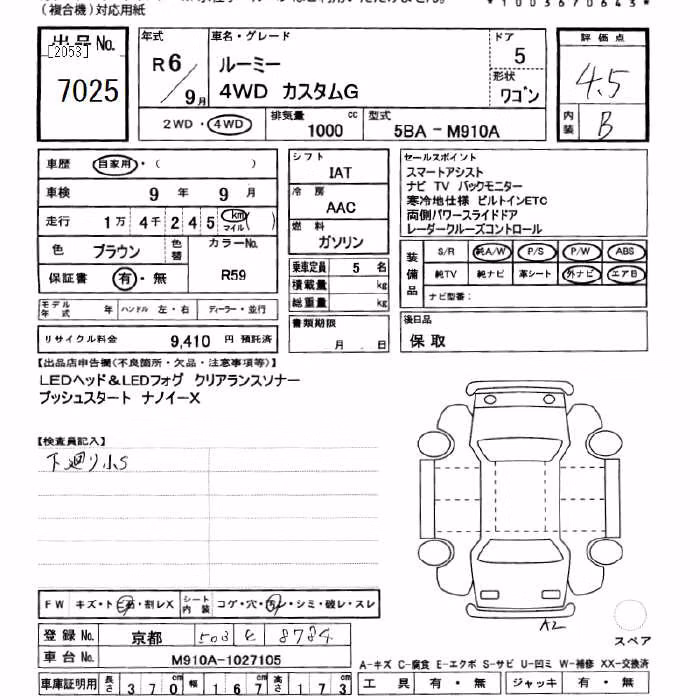 (複合機)対応用紙
*1003670643*
出品No.
[2053]
7025
年式
R6
9月
車名・グレード
ルーミー
4WD カスタムG
ドア
5
形状
ワゴン
2WD・4WD
排気量
1000 cc
型式
5BA-M910A
評価点
4.5
内装
B
車歴 自家用・( )
車検 9年 9月
走行 1万 4千 2 4 5 km マイル ( )
色 ブラウン 色替
カラーNo.
R59
保証書 有・無
モデル年式 年 ハンドル 左・右 ディーラー・並行
リサイクル料金 9,410 円 預託済
シフト
IAT
冷房
AAC
燃料
ガソリン
乗車定員 5 名
積載量 kg
総重量 kg
書類期限
月 日
セールスポイント
スマートアシスト
ナビ TV バックモニター
寒冷地仕様 ビルトインETC
両側パワースライドドア
レーダークルーズコントロール
装備品
S/R 純A/W P/S P/W ABS
純TV 純ナビ 革シート 外ナビ エアB
ナビ型番:
後日品
保取
【出品店申告欄(不良箇所・欠品・注意事項等)】
LEDヘッド&LEDフォグ クリアランスソナー
プッシュスタート ナノイーX
【検査員記入】
下廻り小S
FW キズ・トビ石・割レX
シート内装 コゲ・穴・汚レ・シミ・破レ・スレ
登録No. 京都 503 を 8784
車台No. M910A-1027105
車庫証明用 長さ 370 cm 幅 167 cm 高さ 173 cm
A2
スペア
A-キズ C-腐食 E-エクボ S-サビ U-凹ミ W-補修 XX-交換済
工具 有・無 ジャッキ 有・無